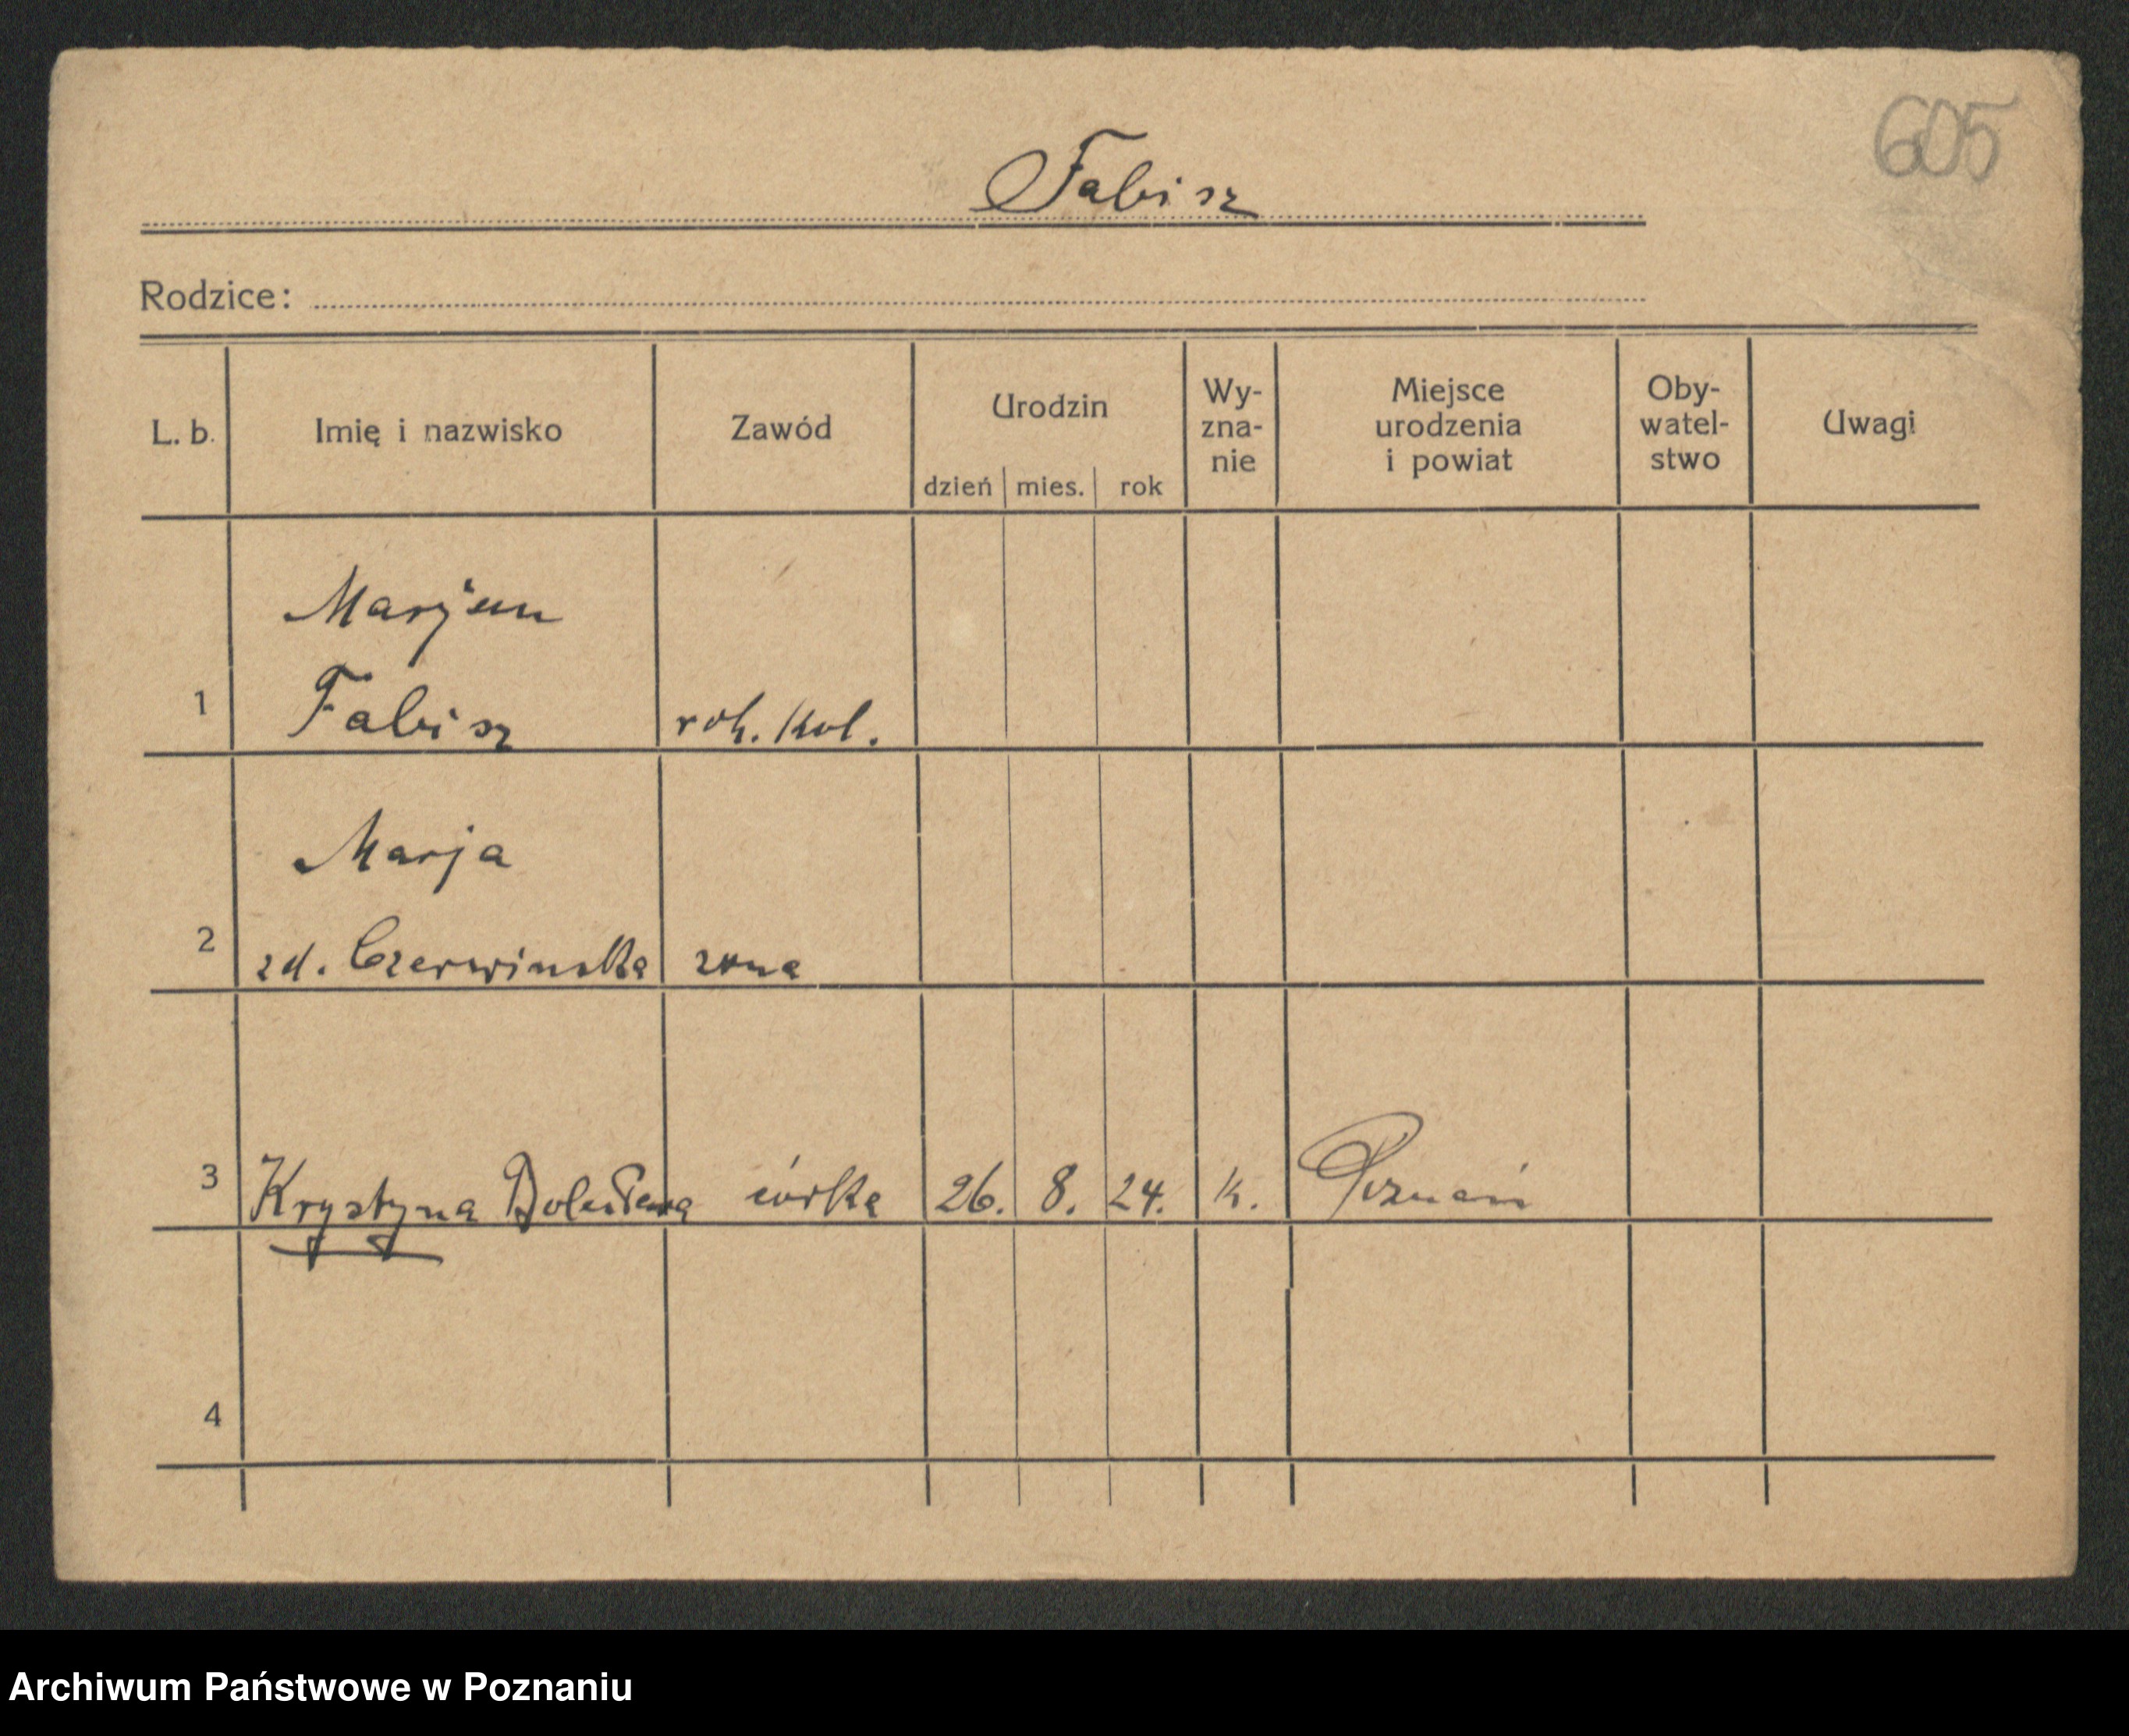 605
Fabisz
Rodzice:
L. b.
Imię i nazwisko
Zawód
Urodzin
dzień mies. rok
Wy-
zna-
nie
Miejsce
urodzenia
i powiat
Oby-
watel-
stwo
Uwagi
Marjan
1 Fabisz rob. kol.
Marja
2 zd. Czerwinska zona
3 Krystyna córka 26. 8. 24. k. Poznań
4
Archiwum Państwowe w Poznaniu